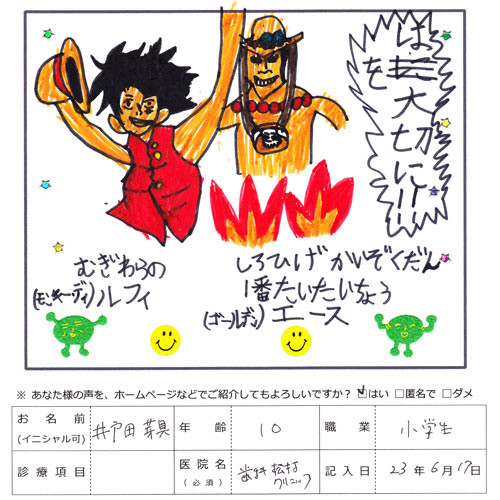 は を大切に!!
むぎわらの
(モンキーディ)ルフィ
しろひげかいぞくだん
1番たいたいちょう
(ゴールディ)エース
※ あなた様の声を、ホームページなどでご紹介してもよろしいですか？ ☑はい □匿名で □ダメ
お名前
(イニシャル可)
井戸田
年齢
10
職業
小学生
診療項目
医院名
(必須)
歯科 松村
クリニック
記入日
23年6月17日